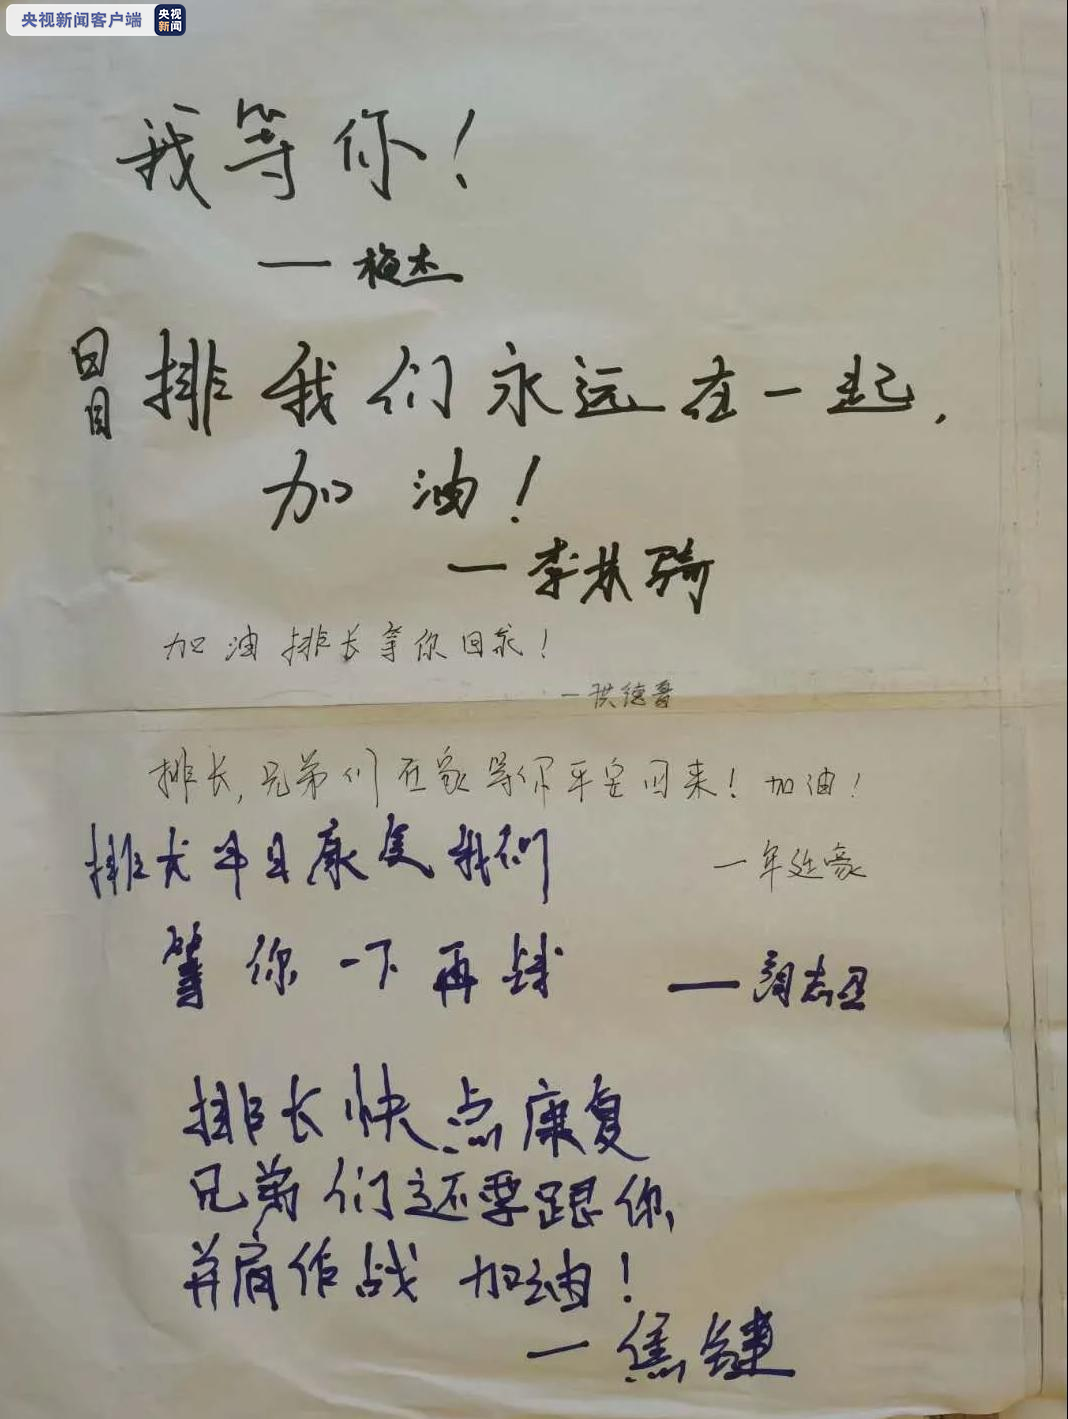 央视新闻客户端 央视新闻
我等你！
—梅杰
冒排我们永远在一起，
加油！
—李林骑
加油排长等你回家！
—洪德普
排长,兄弟们在家等你平安回来！加油！
排长早日康复我们
—年廷豪
等你一下再战
—志卫
排长快点康复
兄弟们还要跟你
并肩作战 加油！
—焦键